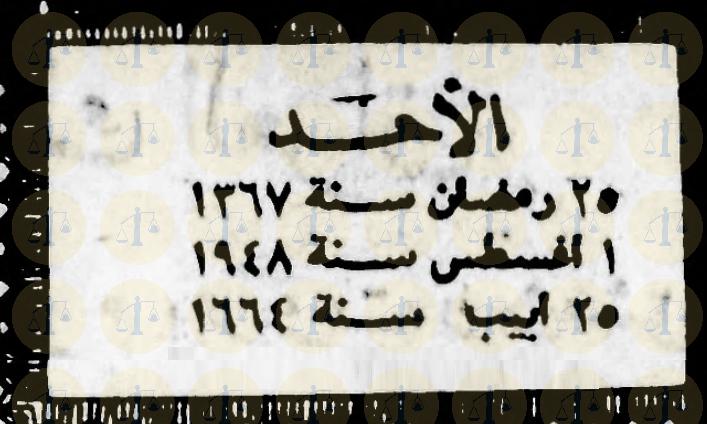 الأحد
٢٥ رمضان سنة ١٣٦٧
١ اغسطس سنة ١٩٤٨
٢٥ ابيب سنة ١٦٦٤